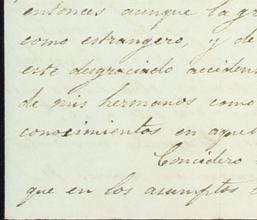 entonces aunque la gr
como estrangero, y de
este desgraciado acciden
de mis hermanos como
conocimientos en aque
Concidero
que en los asumptos